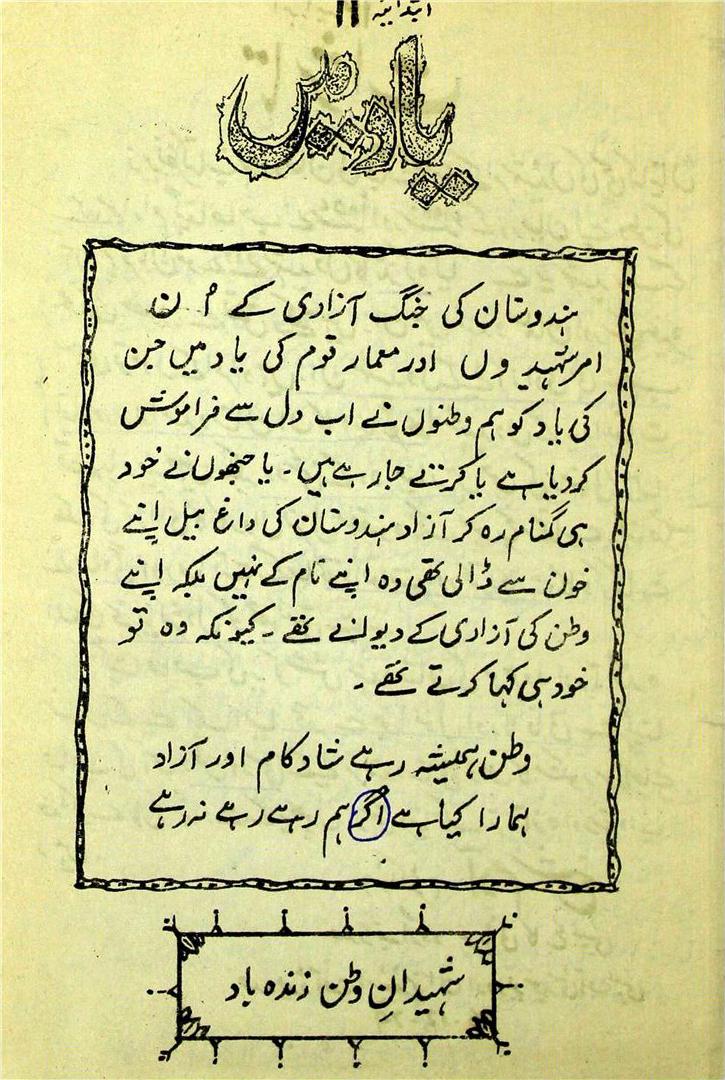 ابتدائیہ 11
یاد میں
ہندوستان کی جنگ آزادی کے اُن
امر شہیدوں اور معمار قوم کی یاد میں جن
کی یاد کو ہم وطنوں نے اب دل سے فراموش
کردیا ہے یا کرتے جا رہے ہیں۔ یا جنھوں نے خود
ہی گمنام رہ کر آزاد ہندوستان کی داغ بیل اپنے
خون سے ڈالی تھی وہ اپنے نام کے نہیں بلکہ اپنے
وطن کی آزادی کے دیوانے تھے۔ کیونکہ وہ تو
خود ہی کہا کرتے تھے۔
وطن ہمیشہ رہے شاد کام اور آزاد
ہمارا کیا ہے اگر ہم رہے رہے نہ رہے
شہیدانِ وطن زندہ باد